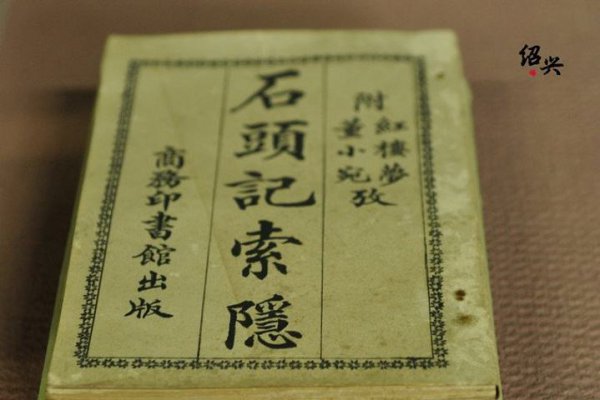 附
紅樓夢
董小宛
攷
石頭記索隱
商務印書館出版
绍兴